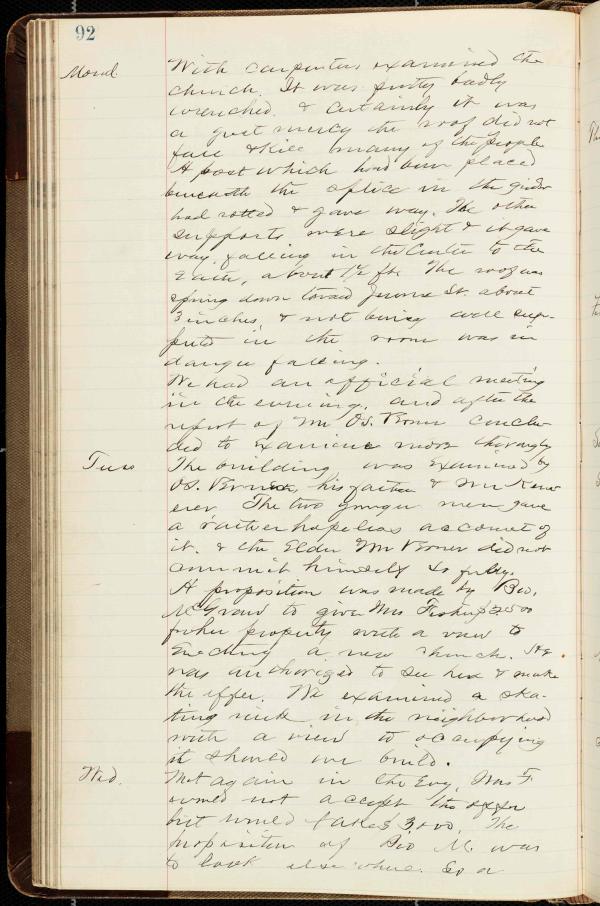 92
Mond. With carpenters examined the
church. It was pretty badly
wrenched, & certainly it was
a great mercy the roof did not
fall & kill many of the people.
A post which had been placed
beneath the splice in the girder
had rotted & gave way. The other
supports were slight & it gave
way, falling in the Center to the
Earth, about 1½ ft. The roof was
spring down toward St. about
3 inches, & not being well sup-
ported in the room was in
danger falling.
We had an official meeting
in the evening, and after the
report of Mr Os. conclu-
ded to examine more thoroughly
Tues The building was examined by
OS. his father & Mr
The two younger men gave
a rather hopeless account of
it. & the Elder Mr did not
commit himself so fully.
A proposition was made by Bro.
McGraw to give Mrs $2500
for her property with a view to
Erecting a new church. He
was authorized to see her & make
the offer. We examined a ska-
ting rink in the neighborhood
with a view to occupying
it should we build.
Wed. Met again in the Evg, Mrs F.
would not accept the offer
but would take $3000. The
proposition of Bro M. was
to look elsewhere. So a